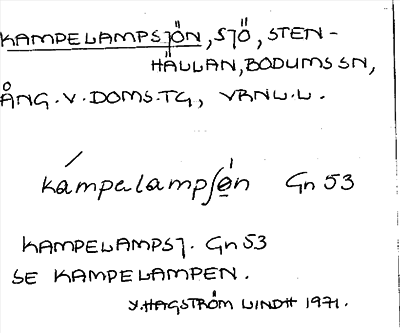 KAMPELAMPSJÖN, SJÖ, STEN-
HÄLLAN, BODUMS SN,
ÅNG. V. DOMS. TG, VRNL. L.
kámpelampʃén Gn 53
KAMPELAMPSJ. Gn 53
SE KAMPELAMPEN.
Y. HAGSTRÖM LINDH 1971.